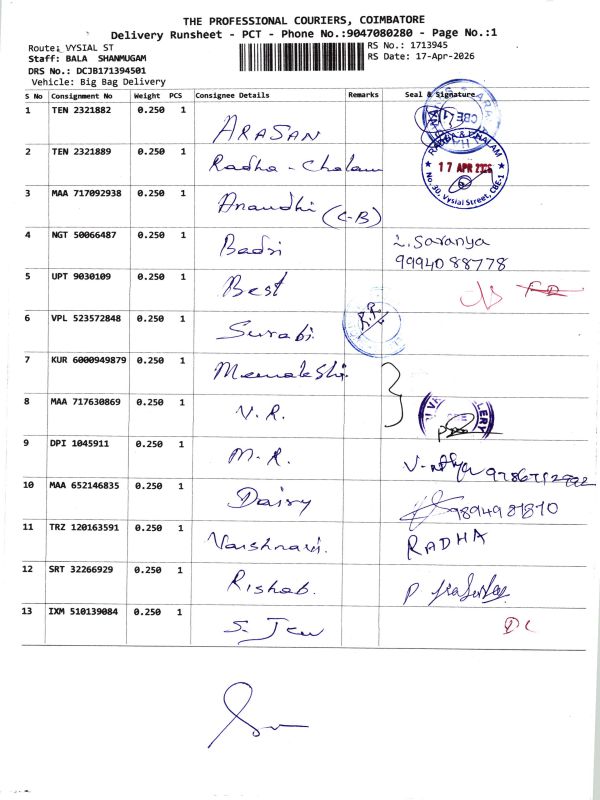 THE PROFESSIONAL COURIERS, COIMBATORE
Delivery Runsheet - PCT - Phone No.:9047080280 - Page No.:1
Route: VYSIAL ST
RS No.: 1713945
Staff: BALA SHANMUGAM
RS Date: 17-Apr-2026
DRS No.: DCJB171394501
Vehicle: Big Bag Delivery
S No Consignment No Weight PCS Consignee Details Remarks Seal & Signature
1 TEN 2321882 0.250 1 ARASAN
CBE-1
2 TEN 2321889 0.250 1 Radha - Chalam
RADHA & CHALAM
17 APR 2026
No.30, Vysial Street, CBE-1
3 MAA 717092938 0.250 1 Anandhi (C-B)
4 NGT 50066487 0.250 1 Badri L. Saranya
9994088778
5 UPT 9030109 0.250 1 Best
6 VPL 523572848 0.250 1 Surabi R.R.
7 KUR 6000949879 0.250 1 Meenakshi
8 MAA 717630869 0.250 1 V.R.
9 DPI 1045911 0.250 1 M.R.
10 MAA 652146835 0.250 1 Dairy
11 TRZ 120163591 0.250 1 Vaishnavi. RADHA
12 SRT 32266929 0.250 1 Rishab.
13 IXM 510139084 0.250 1 S. Jew DC